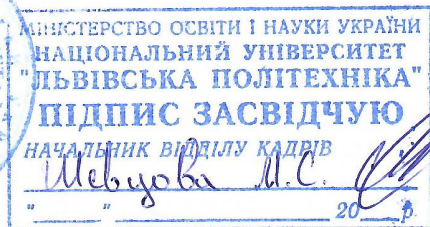 МІНІСТЕРСТВО ОСВІТИ І НАУКИ УКРАЇНИ
НАЦІОНАЛЬНИЙ УНІВЕРСИТЕТ
"ЛЬВІВСЬКА ПОЛІТЕХНІКА"
ПІДПИС ЗАСВІДЧУЮ
НАЧАЛЬНИК ВІДДІЛУ КАДРІВ
Шевцова М.С.
"___"________ 20__р.